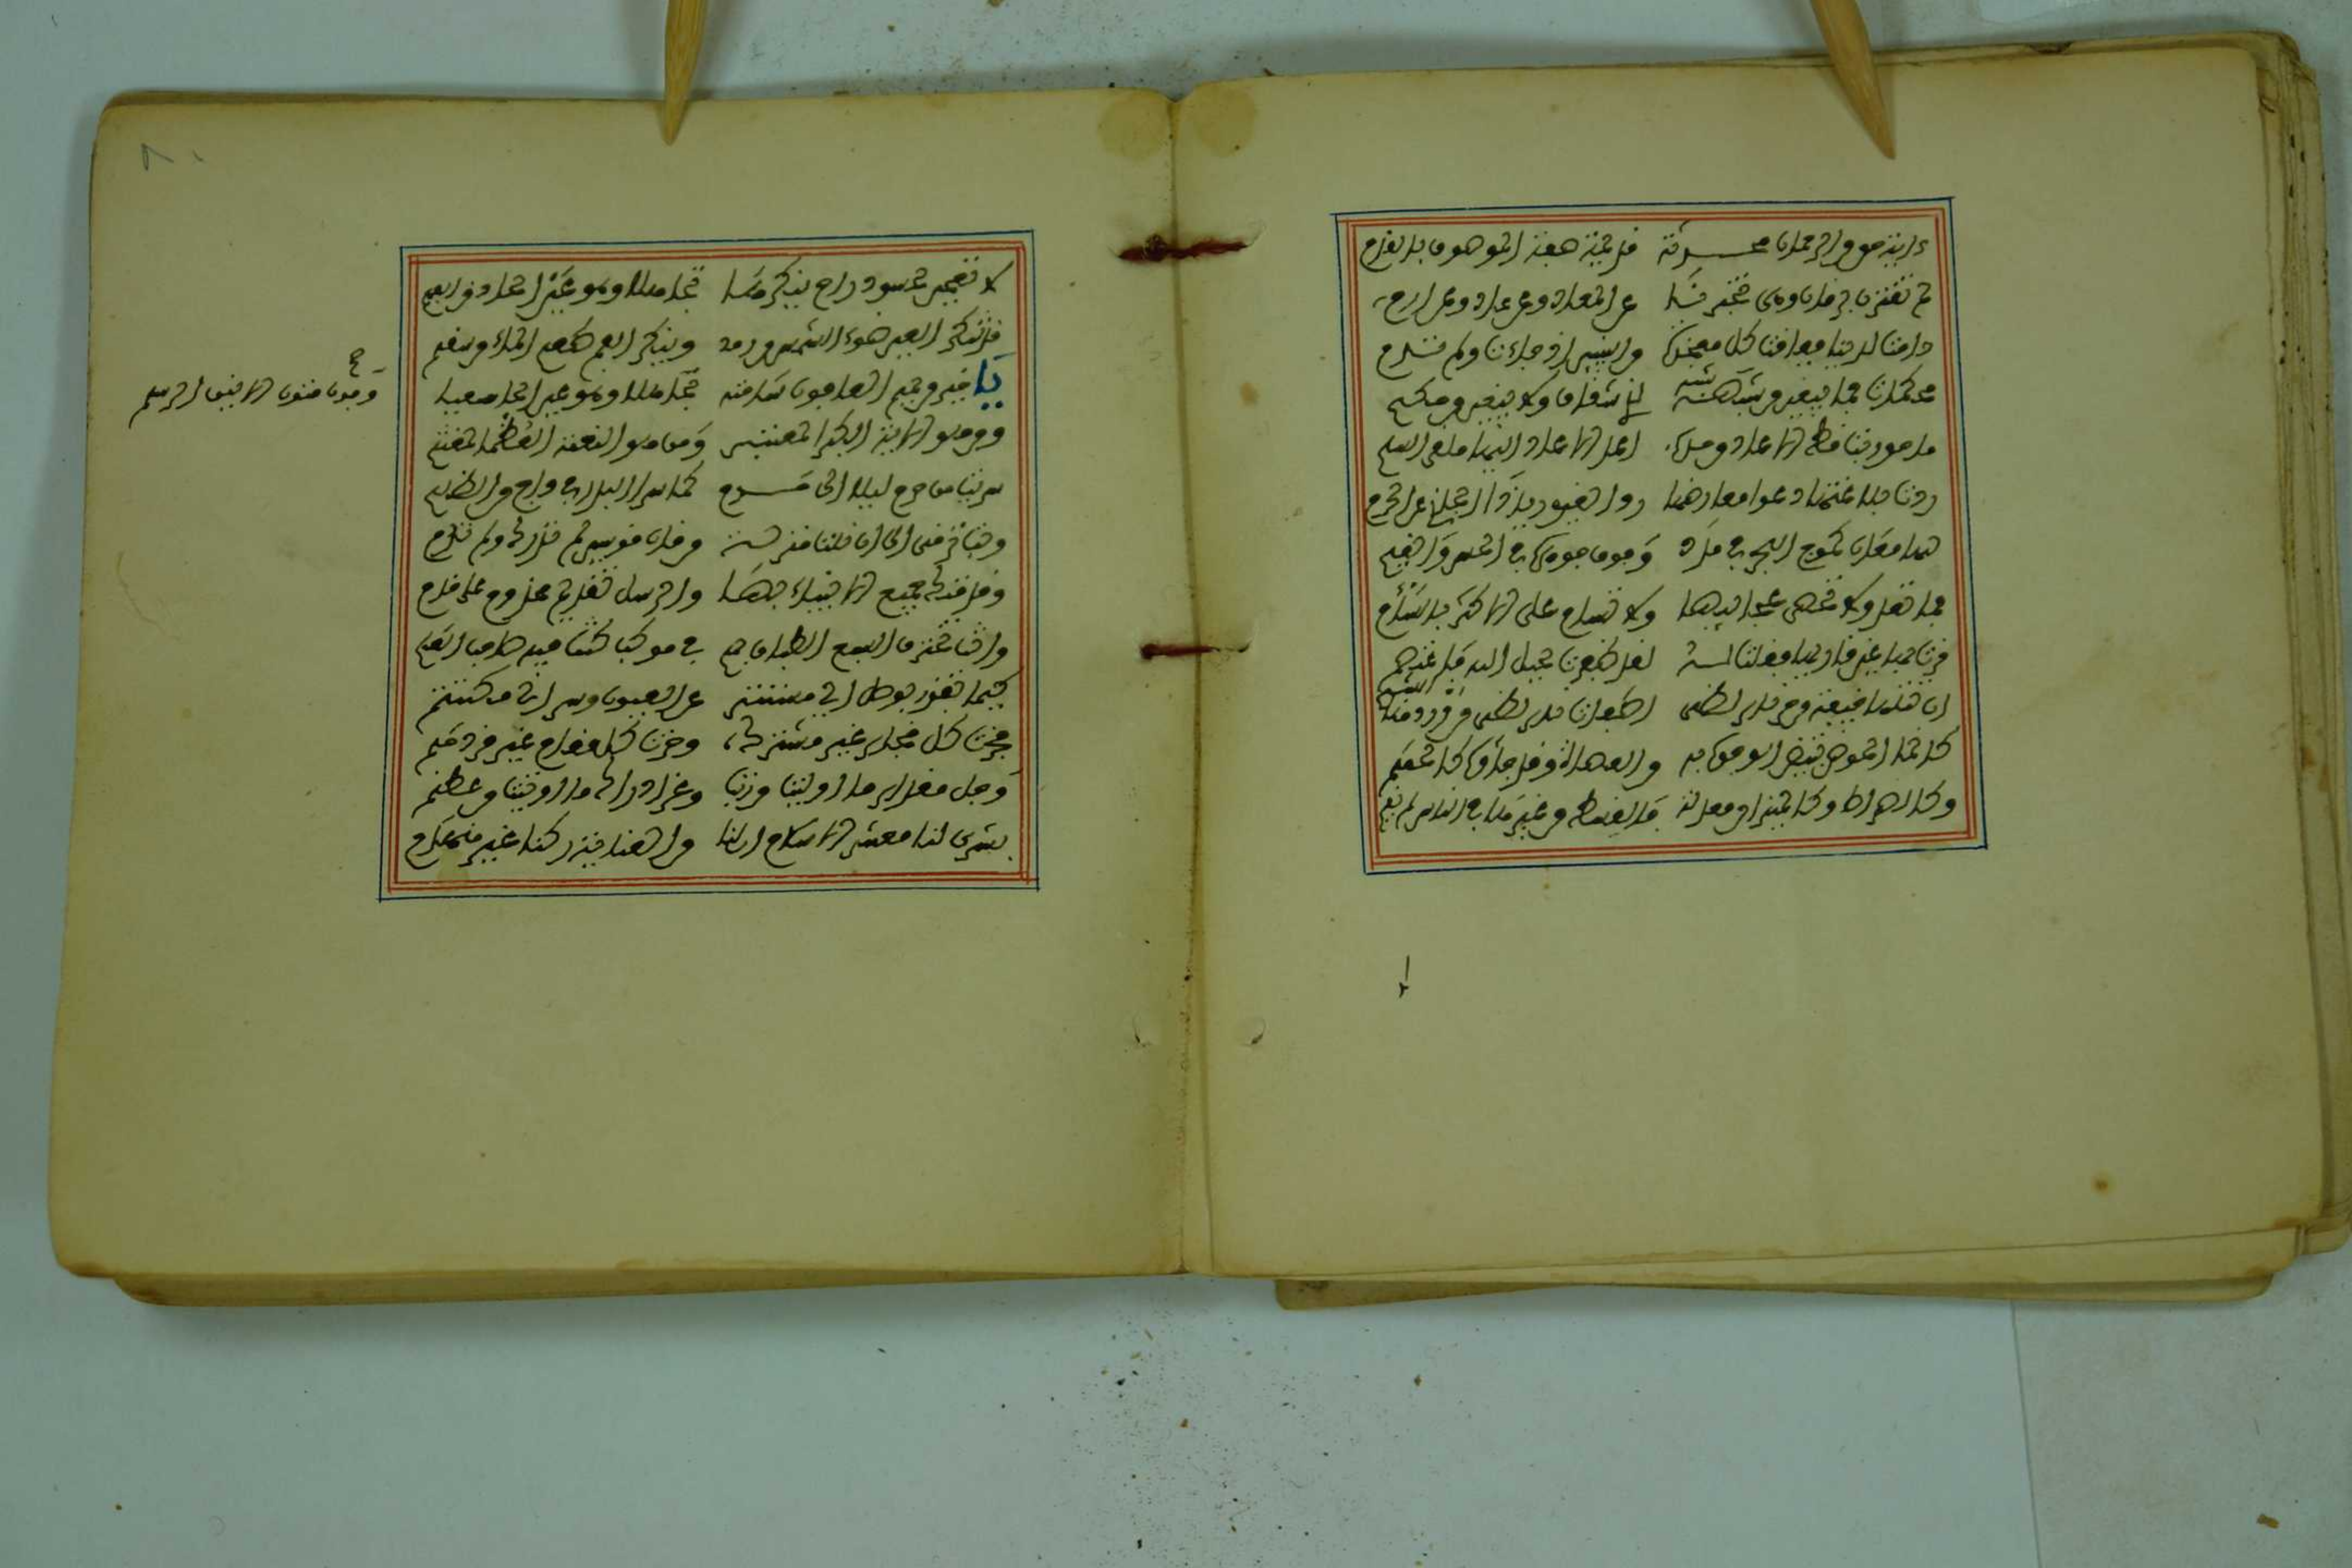 ءايات حق من الرحمان محدثة قديمة صفة الموصوف بالقدم
لم تقترن بزمان وهى تخبرنا عن المعاد وعن عاد وعن ارم
دامت لدينا ففاقت كل معجزة من النبيين اذ جاءت ولم تدم
محكمات فما يبقين من شبه لذى شقاق ولا يبغين من حكم
ما حوربت قط الا عاد من حرب اعدا الاعاد اليها ملقى السلم
ردت بلاغتها دعوا معارضها رد الغيور يد الجانى عن الحرم
لها معان كموج البحر في مدد وفوق جوهره في الحسن والقيم
فما تعد ولا تحصى عجائبها ولا تسام على الاكثار بالسأم
قرت بها عين قاريها فقلت له لقد ظفرت بحبل الله فاعتصم
ان تتلها خيفة من حر نار لظى اطفات نار لظى من وردها الشبم
كانها الحوض تبيض الوجوه به من العصاة وقد جاءوه كالحمم
وكالصراط وكالميزان معدلة فالقسط من غيرها في الناس لم يقم
لا تعجبن لحسود راح ينكرها تجاهلا وهو عين الحاذق الفهم
قد تنكر العين ضوء الشمس من رمد وينكر الفم طعم الماء من سقم
يا خير من يمم العافون ساحته تجاهلا وهو عين الحا سعيا
وفوق متون الاينق الرسم
ومن هو الاية الكبرا لمعتبر ومن هو النعمة العظما لمغتنم
سريت من حرم ليلا الى حرم كما سرا البدر في داج من الظلم
وبت ترقى الى ان نلت منزلة من قاب قوسين لم تدرك ولم ترم
وقدمتك جميع الانبياء بها والرسل تقديم مخدوم على خدم
وانت تخترق السبع الطباق بهم في موكب كنت فيه صاحب العلم
كيما تفوز بوصل اي مستتر عن العيون وسر اي مكتتم
فحزت كل فخار غير مشترك وجزت كل مقام غير مزدحم
وجل مقدار ما اوليت من رتب وعز ادراك ما اوتيت من
بشرى لنا معشر الاسلام ان لنا من العناية ركنا غير منهدم